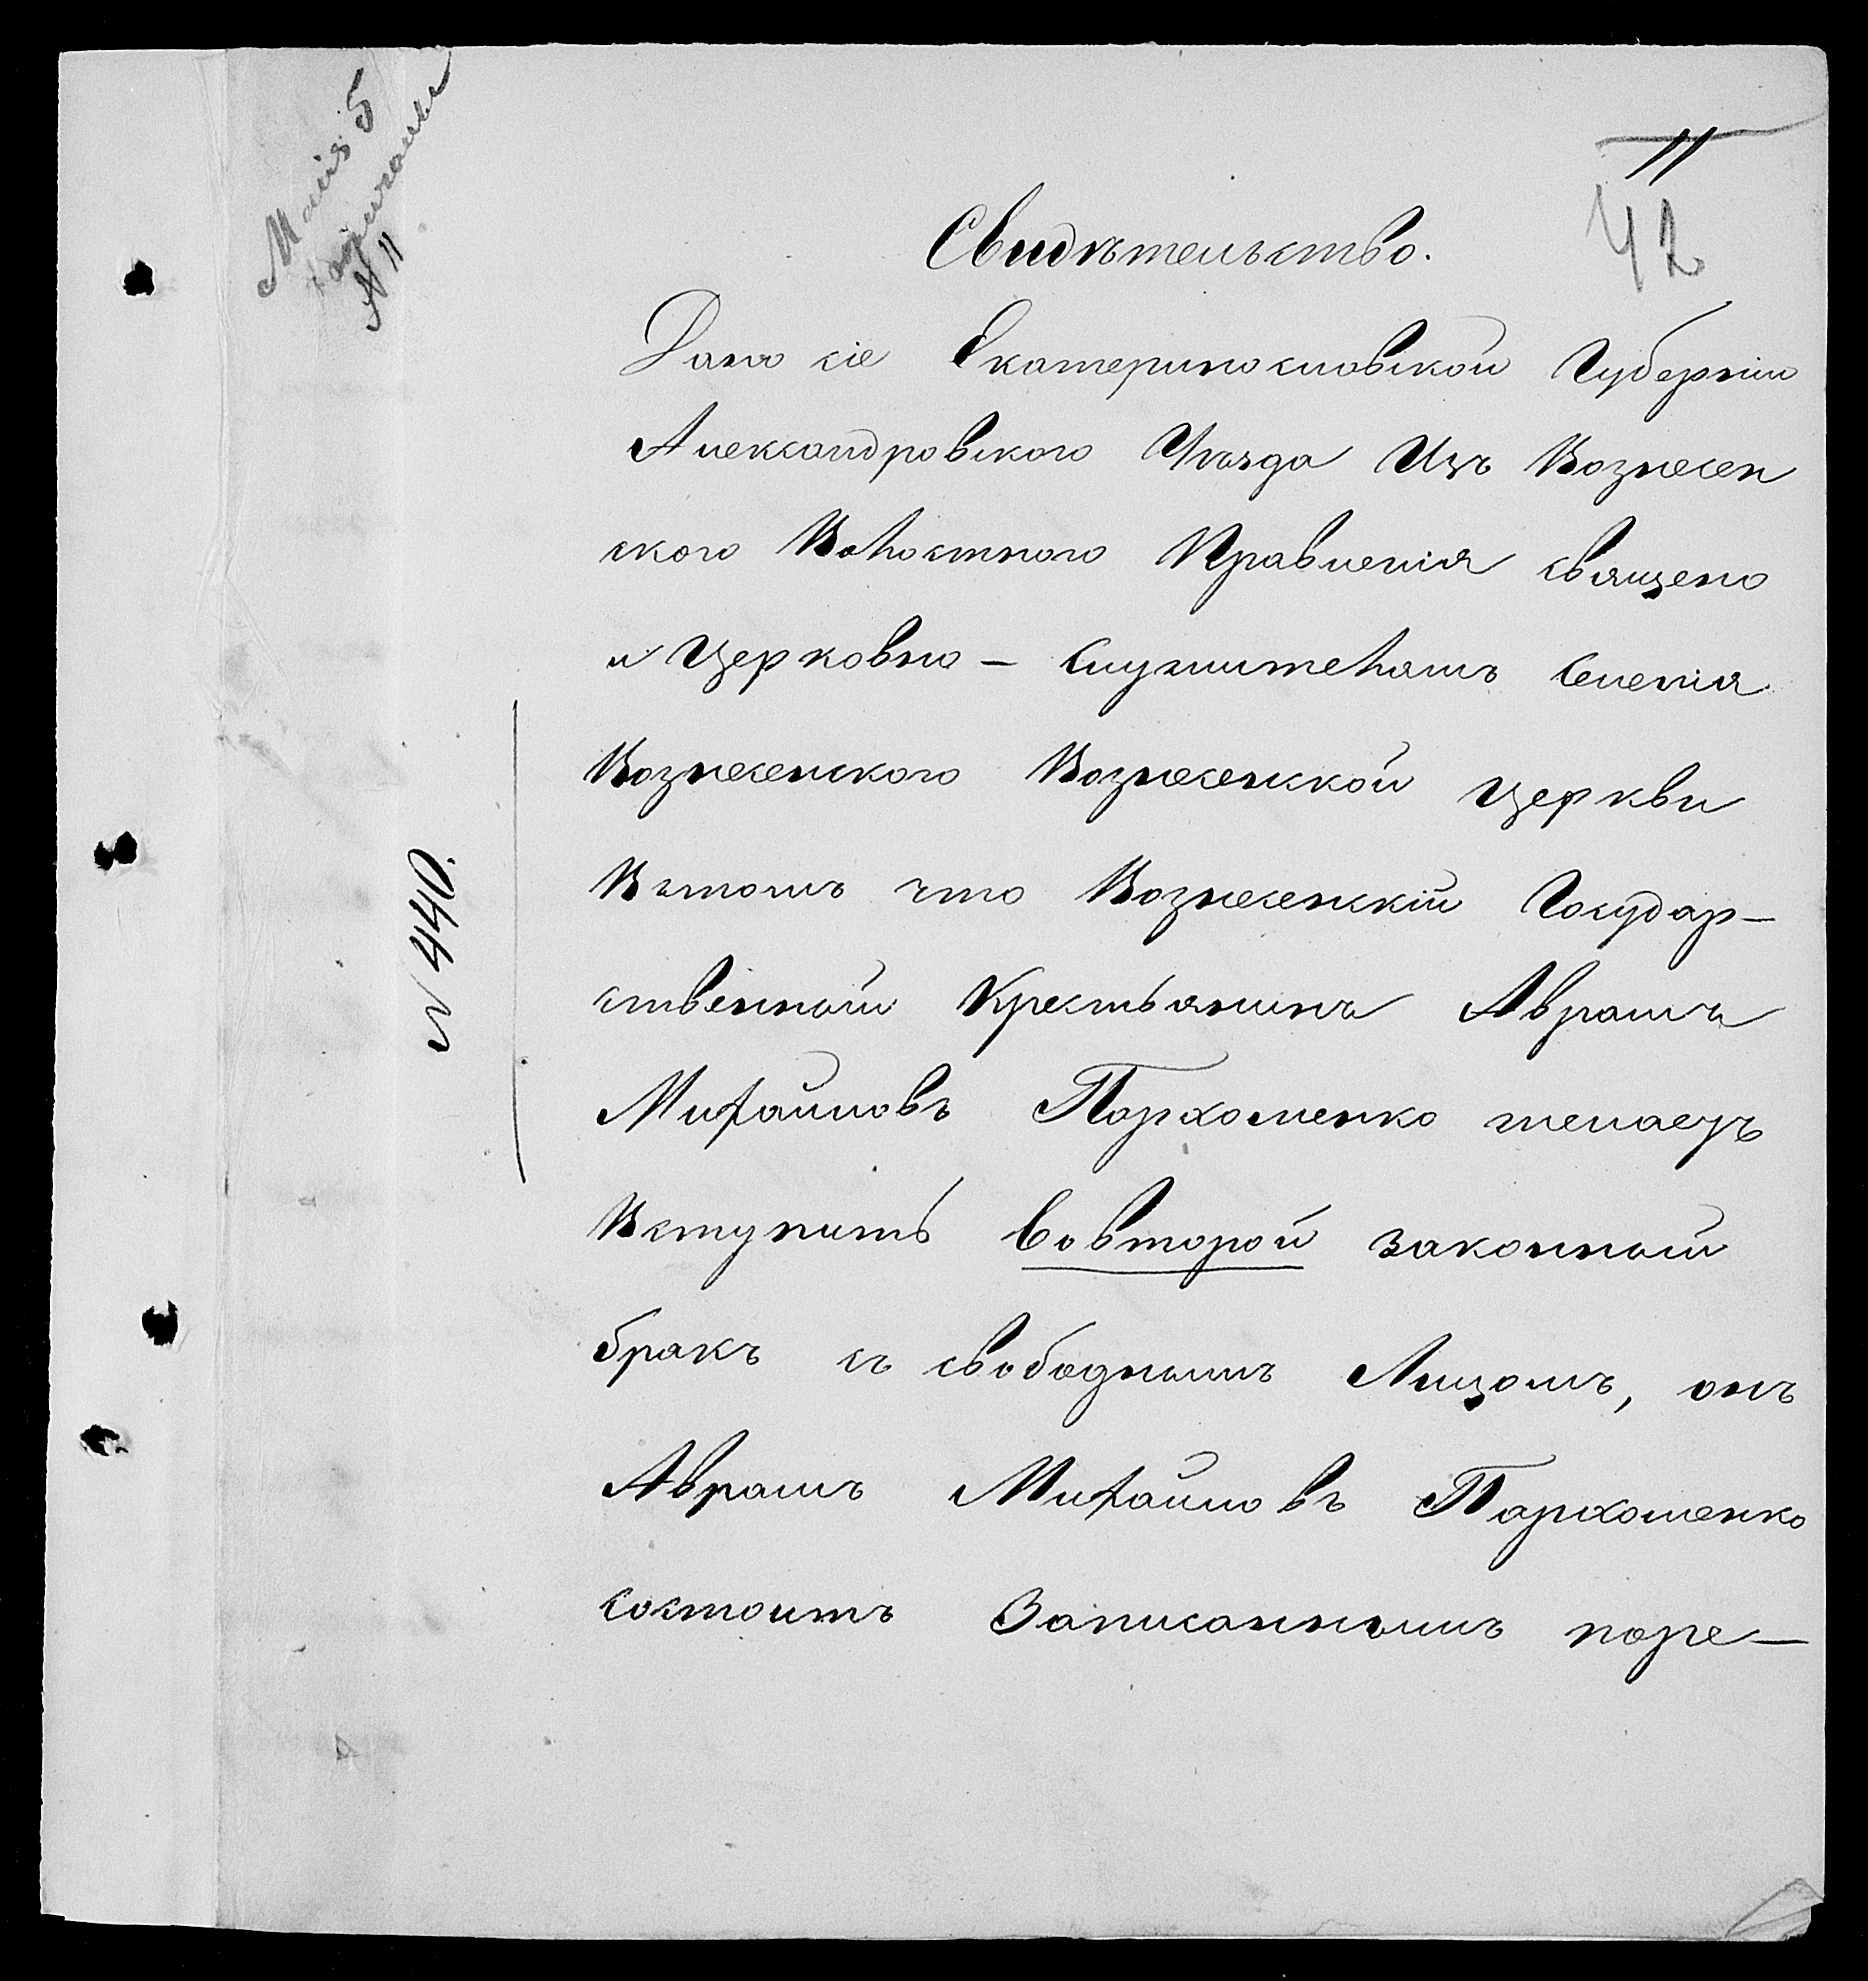 Маія 5
N 11
11
42
Свидѣтельство.
Дано сіе Екатеринославской Губерніи
Александровского Уѣзда Изъ Вознесен
ского Волостного Правленія священо
и Церковно - служителямъ Селенія
Вознесенского Вознесенской церкви
Вътомъ что Вознесенскій Государ-
ственный Крестьянинъ Аврамъ
Михайловъ Пархоменко желаетъ
Вступить вовторой законный
бракъ съ свободнымъ Лицомъ, онъ
Аврамъ Михайловъ Пархоменко
состоитъ Записаннымъ поре-
N 440.